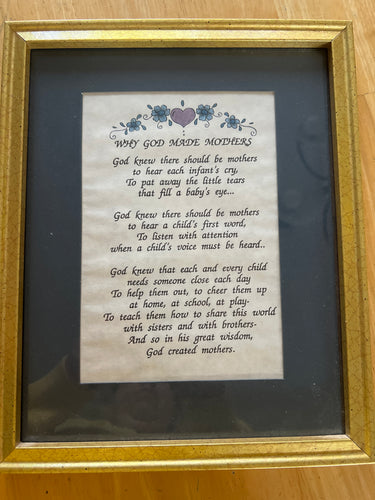 WHY GOD MADE MOTHERS
God knew there should be mothers
to hear each infant's cry,
To pat away the little tears
that fill a baby's eye...
God knew there should be mothers
to hear a child's first word,
To listen with attention
when a child's voice must be heard..
God knew that each and every child
needs someone close each day
To help them out, to cheer them up
at home, at school, at play-
To teach them how to share this world
with sisters and with brothers-
And so in his great wisdom,
God created mothers.